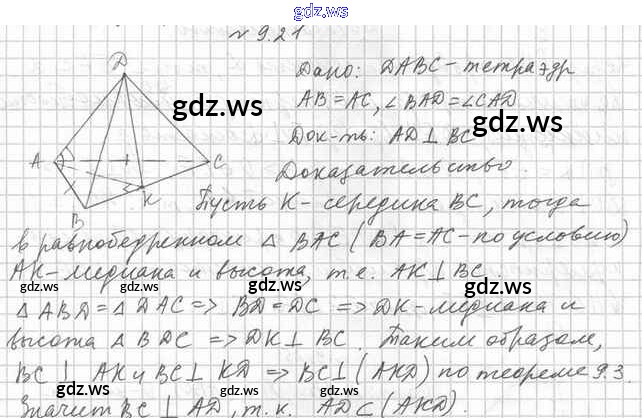 gdz.ws
№ 9.21
D
A
B
C
K
Дано: DABC - тетраэдр
AB = AC, ∠BAD = ∠CAD
gdz.ws
gdz.ws
Док-ть: AD ⊥ BC
Доказательство.
Пусть K - середина BC, тогда
в равнобедренном △ BAC (BA = AC - по условию)
AK - медиана и высота, т.е. AK ⊥ BC.
gdz.ws
gdz.ws
△ ABD = △ DAC => BD = DC => DK - медиана и
высота △ BDC => DK ⊥ BC. Таким образом,
BC ⊥ AK и BC ⊥ KD => BC ⊥ (AKD) по теореме 9.3.
gdz.ws
gdz.ws
Значит BC ⊥ AD, т.к. AD ⊂ (AKD).